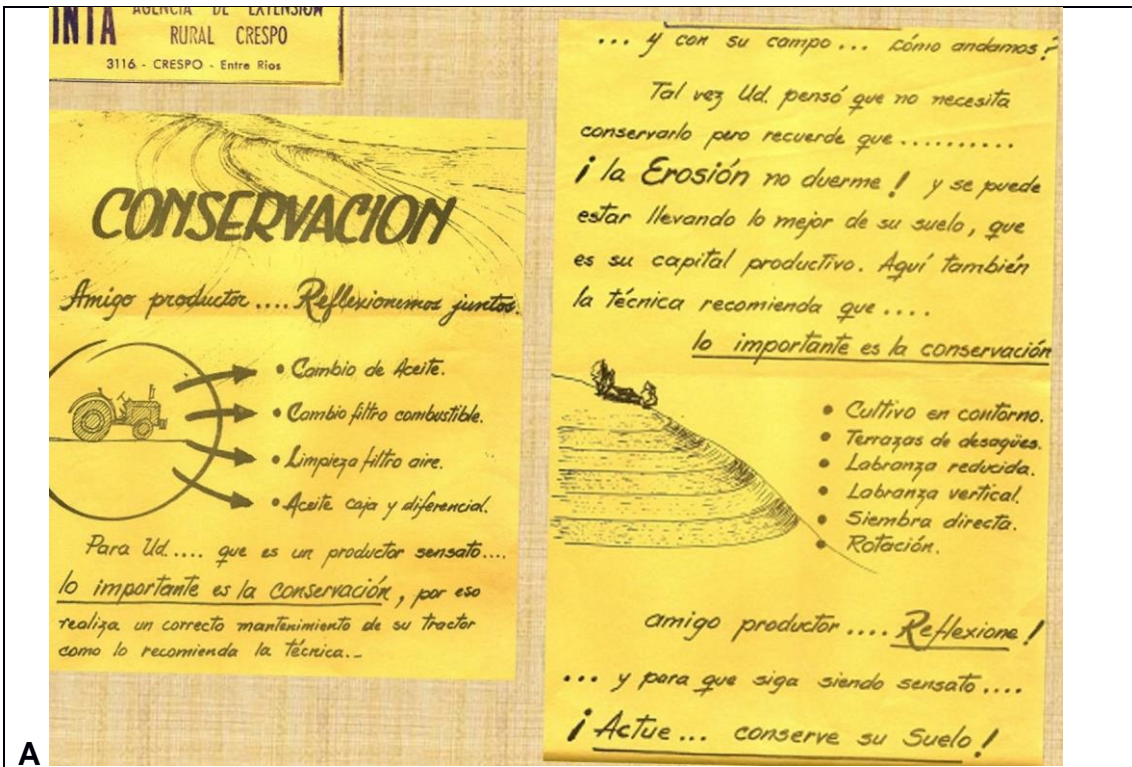 INTA AGENCIA DE EXTENSION
RURAL CRESPO
3116 - CRESPO - Entre Rios
CONSERVACION
Amigo productor.... Reflexionemos juntos.
• Cambio de Aceite.
• Cambio filtro combustible.
• Limpieza filtro aire.
• Aceite caja y diferencial.
Para Ud.... que es un productor sensato....
lo importante es la conservación, por eso
realiza un correcto mantenimiento de su tractor
como lo recomienda la técnica._
... y con su campo... cómo andamos?
Tal vez Ud. pensó que no necesita
conservarlo pero recuerde que..........
¡la Erosión no duerme! y se puede
estar llevando lo mejor de su suelo, que
es su capital productivo. Aquí también
la técnica recomienda que....
lo importante es la conservación
• Cultivo en contorno.
• Terrazas de desagües.
• Labranza reducida.
• Labranza vertical.
• Siembra directa.
• Rotación.
amigo productor.... Reflexione!
... y para que siga siendo sensato....
¡Actue... conserve su Suelo!
A